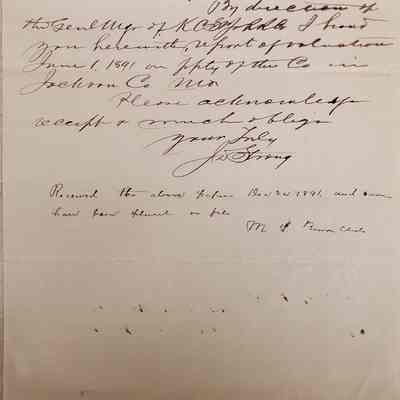 By direction of
the Genl Mgr of K C I hand
you herewith, report of valuation
June 1. 1891 on ppty of the Co in
Jackson Co Mo.
Please acknowledge
receipt & much oblige
yours Truly
J D Strong
Received the above papers Dec 1891, and same
have been placed on file
M S Clerk